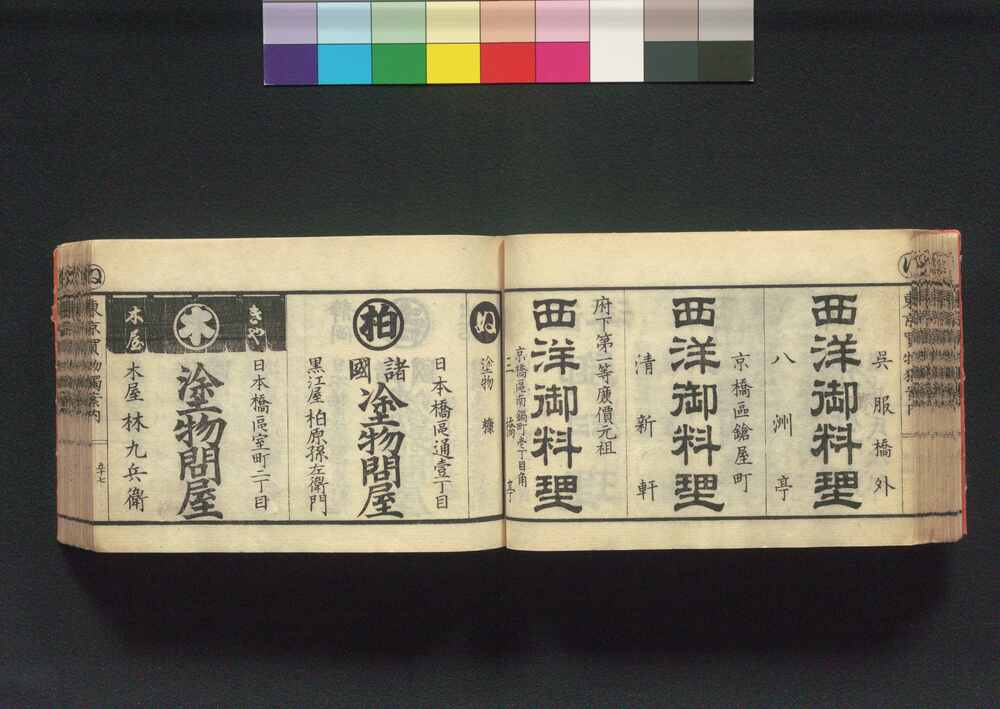 呉服橋外
西洋御料理
八洲亭
京橋區鎗屋町
西洋御料理
清新軒
府下第一等廉價元祖
西洋御料理
京橋區南鍋町壱丁目角
ぬ
塗物
糠
日本橋區通壹丁目
柏
諸國
塗物問屋
黒江屋 柏原孫左衛門
きや
日本橋區室町二丁目
木
塗物問屋
木屋
木屋 林九兵衛
ぬ
東京買物獨案内